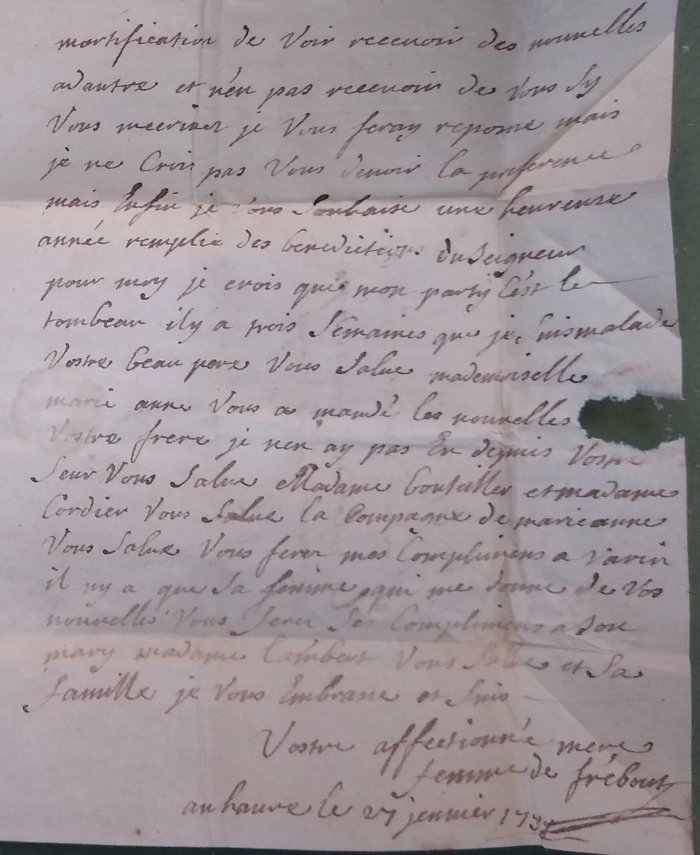 mortification de Voir recevoir des nouvelles
adautre et n'en pas recevoir de Vous Sy
Vous mecriver je Vous feray reponse mais
je ne Crois pas Vous devoir la preference
mais Enfin je Vous Souhaise une heureuse
année remplie des benedictions du Seigneur
pour moy je crois que mon party C'est le
tombeau il y a trois Semaines que je Suis malade
Vostre beau pere Vous Salue mademoiselle
marie anne Vous a mandé les nouvelles
Vostre frere je nen ay pas Eu depuis Vostre
Seur Vous Salue Madame bouteiller et madame
Cordier Vous Salue la Compagne de marieanne
Vous Salue Vous ferer mes Complimens a Varin
il ny a que Sa femme qui me donne de Vos
nouvelles Vous ferer Ses Complimens a Son
mary madame Lambert Vous Salue et Sa
famille je Vous Embrasse et Suis
Vostre affectionnée mere
femme de frébout
au havre le 27 jenvier